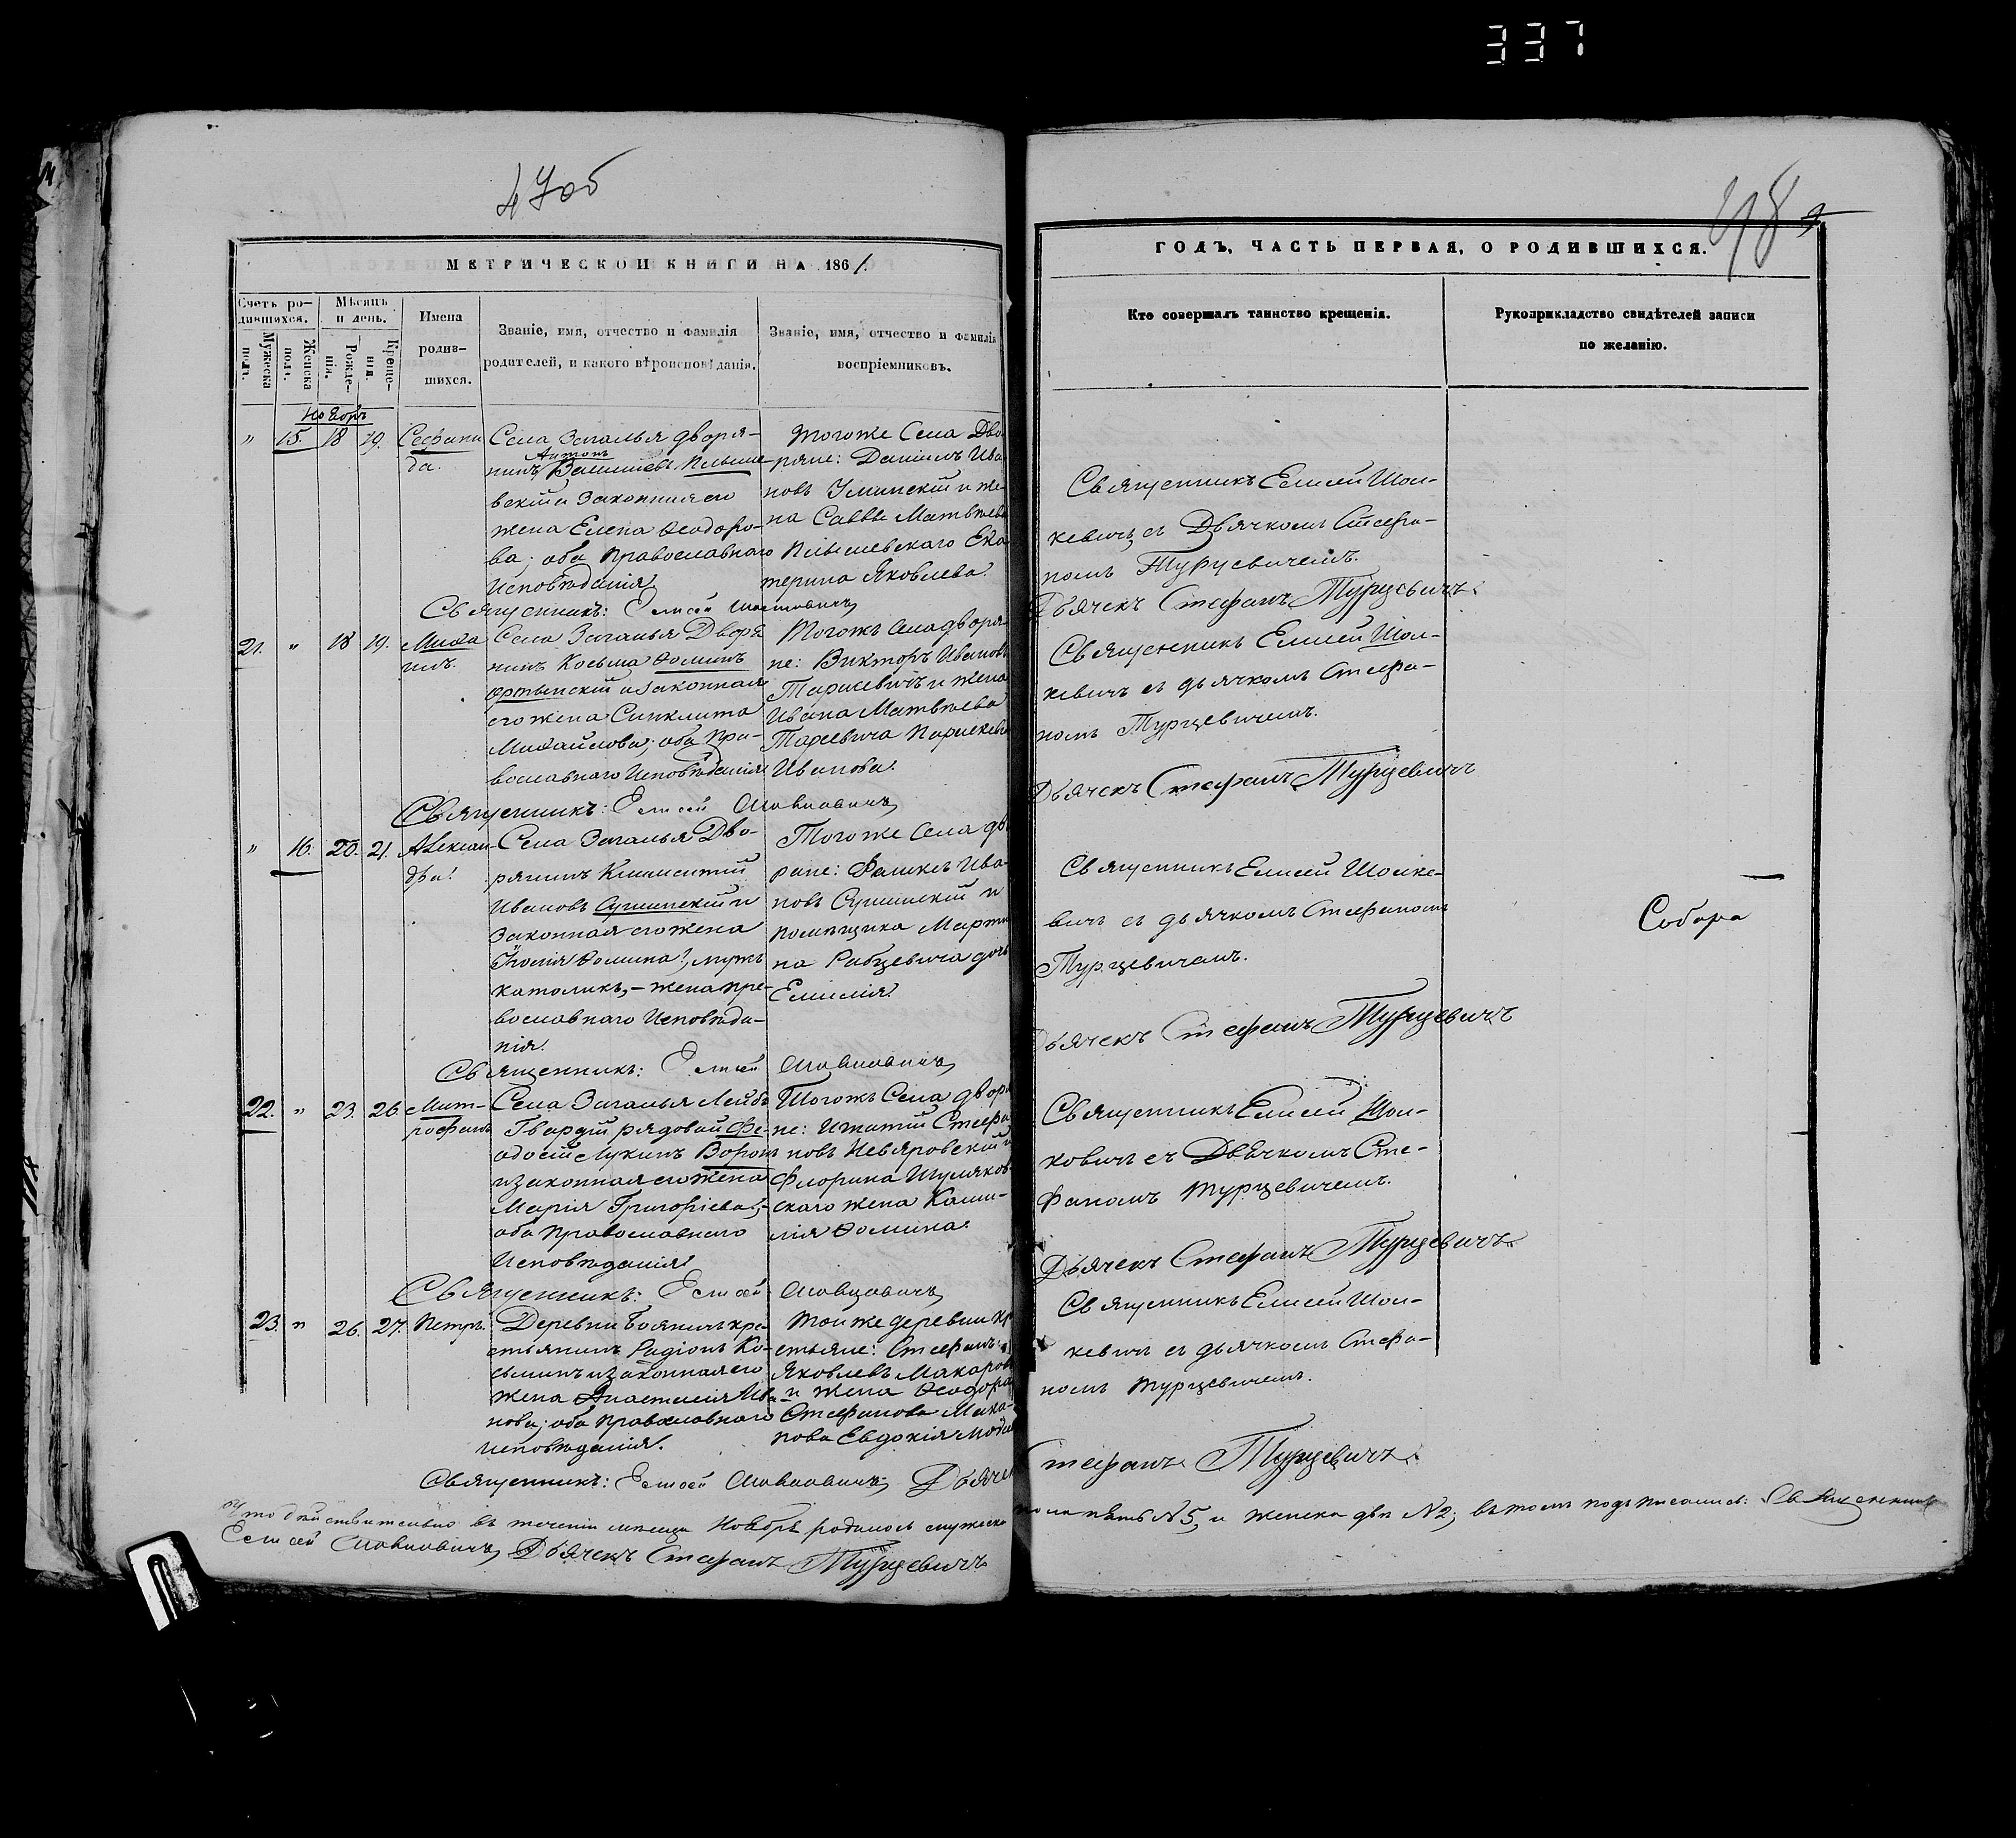 337
47об
48
МЕТРИЧЕСКОЙ КНИГИ НА 1861.
Счетъ ро-
дившихся.
Мужеска
полъ.
Женска
полъ.
Мѣсяцъ
и день.
Рожде-
нія.
Креще-
нія.
Имена
родив-
шихся.
Званіе, имя, отчество и фамилія
родителей, и какого вѣроисповѣданія.
Званіе, имя, отчество и фамилія
воспріемниковъ.
Ноябрь
" 15. 18 19. Серафи
да.
Села Загалья дворя-
Антонъ
нинъ
вскій и законная его
жена Елена Ѳеодоро-
ва; оба православнаго
Исповѣданія
тогоже Села Дво
ряне: Даніилъ Ива
новъ и же-
на Саввы Матвѣева
Ека
терина Яковлева.
Священникъ: Елисей
21. " 18 19. Миха
илъ.
Села Загалья Дворя
нинъ Косьма Ѳоминъ
и законная
его жена Синклита
Михайлова; оба Пра-
вославнаго Исповѣданія
Тогожъ Села дворя-
не: Викторъ Ивановъ
и жена
Ивана Матвѣева
Иванова.
Священникъ: Елисей
" 16. 20. 21. Алексан-
дра.
Села Загалья Дво-
рянинъ Климентій
Ивановъ Сушинскій и
законная его жена
Ѳомина, мужъ
католикъ, - жена пра-
вославнаго Исповѣда-
нія.
Тогоже Села дв
ряне: Феликсъ Ива-
новъ Сушинскій и
помѣщика Марти
на Рабцевича дочь
Емилія.
Священникъ: Елисей
22. " 23. 26. Мит-
рофанъ
Села Загалья Лейбъ
Гвардіи рядовой Ѳе-
одосій Лукинъ Воронъ
и законная его жена
Марія Григоріева; -
оба православнаго
Исповѣданія
Тогожъ Села дворя
не: Игнатій Стефа
новъ Невяровскій и
Флоріана
скаго жена Ками-
лія Ѳомина.
Священникъ: Елисей
23. " 26. 27. Петръ.
Деревни кре-
стьянинъ Родіонъ Ко-
сьминъ и законная его
жена Анастасія Ива-
нова; оба православнаго
исповѣданія.
Тойже деревни кр
естьяне: Стефанъ
Яковлевъ Макаров
и жена Ѳеодора
Стефанова Мака-
рова Евдокія
Священникъ: Елисей
Что дѣйствительно въ теченіи мѣсяца Ноября родилось мужеска
Елисей Дьячекъ Стефанъ Турцевичъ
ГОДЪ, ЧАСТЬ ПЕРВАЯ, О РОДИВШИХСЯ.
Кто совершалъ таинство крещенія.
Рукоприкладство свидѣтелей записи
по желанію.
Священникъ Елисей Шол-
кевичъ съ Дьячкомъ Стефа-
номъ Турцевичемъ.
Дьячекъ Стефанъ Турцевичъ
Священникъ Елисей Шол-
кевичъ съ дьячкомъ Стефа-
номъ Турцевичемъ.
Дьячекъ Стефанъ Турцевичъ
Священникъ Елисей Шолке-
вичъ съ дьячкомъ Стефаномъ
Турцевичемъ.
Собора
Дьячекъ Стефанъ Турцевичъ
Священникъ Елисей Шол-
ковичъ съ Дьячкомъ Сте-
фаномъ Турцевичемъ.
Дьячекъ Стефанъ Турцевичъ
Священникъ Елисей Шол-
кевичъ съ дьячкомъ Стефа-
номъ Турцевичемъ.
Дьячек Стефанъ Турцевичъ
пола пять №5, и женска двѣ №2; въ томъ подъписались: Священникъ